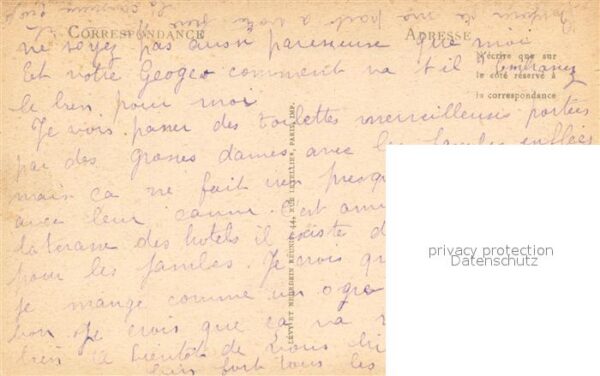 Bonjour de ma part à votre
CORRESPONDANCE
ADRESSE
N'écrire que sur
le côté réservé à
la correspondance
ne soyez pas aussi paresseuse que moi
Et votre Geoges comment va t il Embrassez
le bien pour moi
Je vois passer des toilettes merveilleuses portées
par des grosses dames avec les jambes enflées
mais ça ne fait rien
avec leur canne. C'est
terasse des hotels il existe
pour les familles. Je crois
je mange comme un ogre
bon Je crois que ça va
bien A bientôt de vous
bien fort tous les
LÉVY ET NEURDEIN RÉUNIS, 44, RUE LETELLIER, PARIS. IMP.
privacy protection
Datenschutz